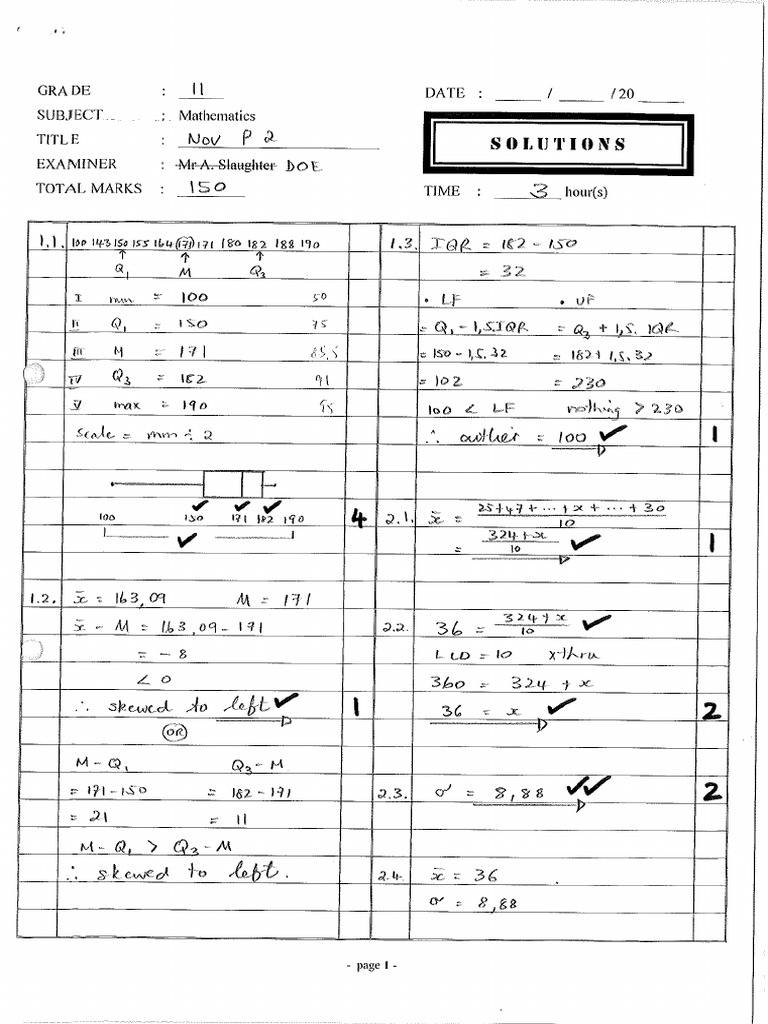 GRADE : 11
SUBJECT : Mathematics
TITLE : Nov P 2
EXAMINER : Mr A. Slaughter DOE
TOTAL MARKS : 150
DATE : ____ / ____ / 20 ____
SOLUTIONS
TIME : 3 hour(s)
1.1. 100 143 150 155 164 171 171 180 182 188 190
↑ ↑ ↑
Q₁ M Q₃
I min = 100 50
II Q₁ = 150 75
III M = 171 85,5
IV Q₃ = 182 91
V max = 190 95
scale = mm ÷ 2
100 150 171 182 190
✓ ✓ ✓
✓ 4
1.2. x̄ = 163,09 M = 171
x̄ - M = 163,09 - 171
= -8
< 0
∴ skewed to left ✓ 1
OR
M - Q₁ Q₃ - M
= 171 - 150 = 182 - 171
= 21 = 11
M - Q₁ > Q₃ - M
∴ skewed to left.
1.3. IQR = 182 - 150
= 32
• LF • UF
= Q₁ - 1,5.IQR = Q₃ + 1,5. IQR
= 150 - 1,5.32 = 182 + 1,5.32
= 102 = 230
100 < LF nothing > 230
∴ outlier = 100 ✓ 1
2.1. x̄ = 25+47+ ... + x + ... + 30 / 10
= 324+x / 10 ✓ 1
2.2. 36 = 324+x / 10 ✓
LCD = 10 x thru
360 = 324 + x
36 = x ✓ 2
2.3. σ = 8,88 ✓✓ 2
2.4. x̄ = 36
σ = 8,88
- page 1 -